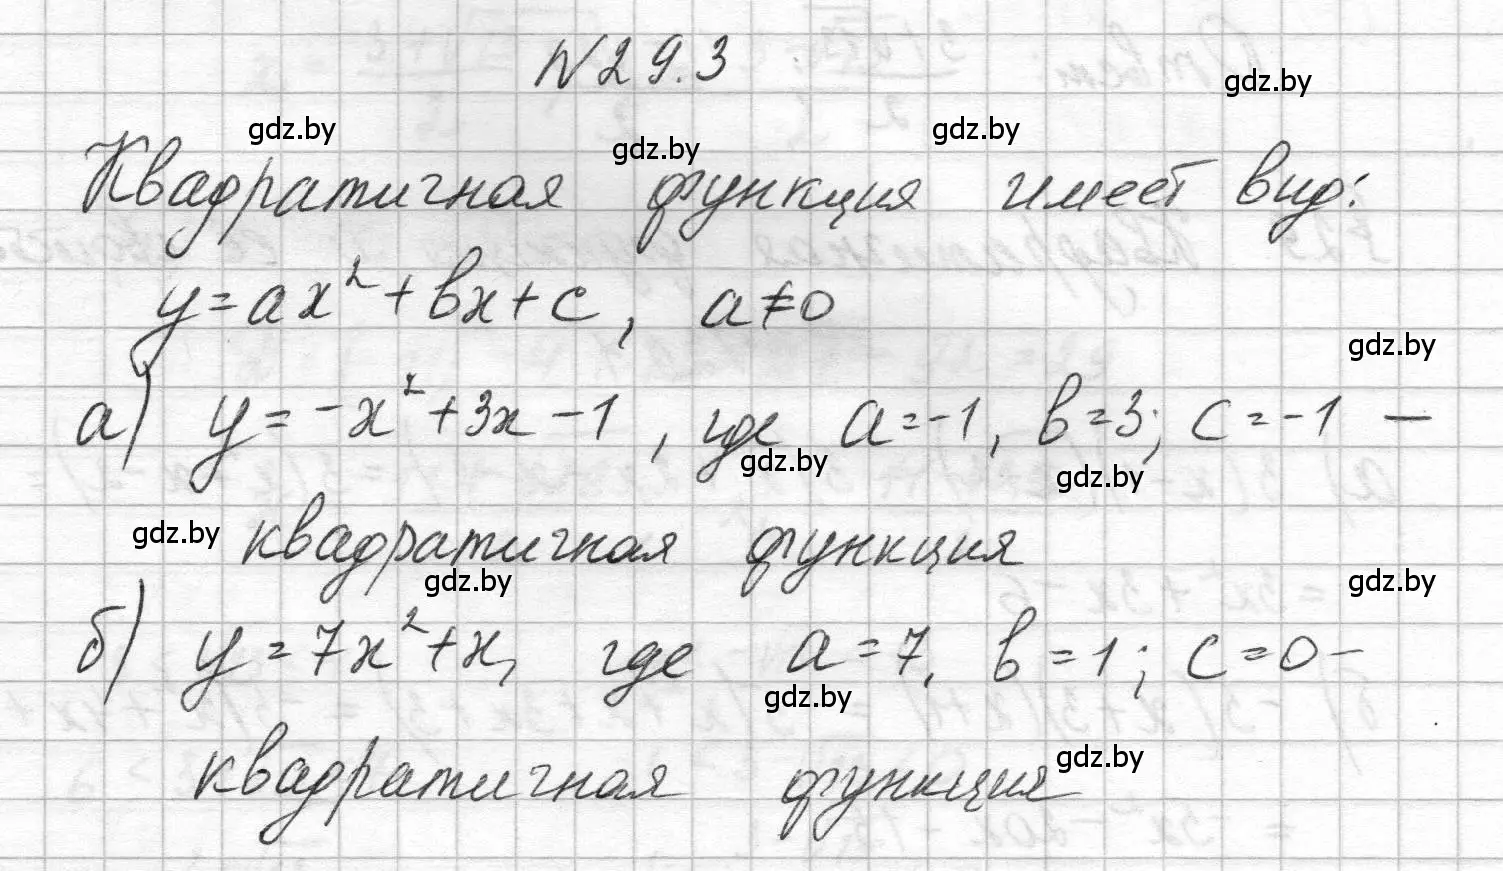 №29.3
gdz.by
gdz.by
gdz.by
gdz.by
Квадратичная функция имеет вид:
y=ax²+bx+c, a≠0
gdz.by
а) y=-x²+3x-1, где a=-1, b=3; c=-1 —
gdz.by
gdz.by
gdz.by
квадратичная функция
gdz.by
gdz.by
б) y=7x²+x, где a=7, b=1; c=0-
gdz.by
квадратичная функция
gdz.by